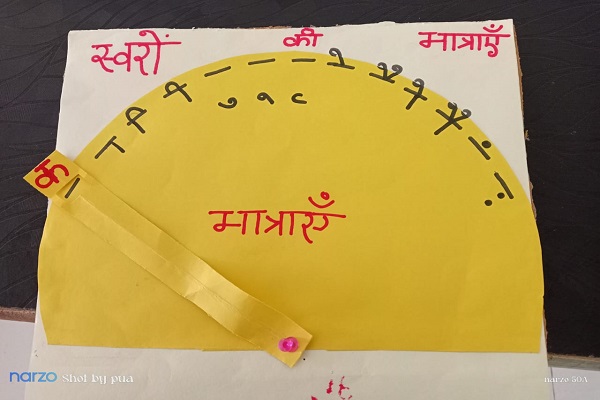 स्वरों की मात्राएँ
क
ा ि ी ु ू ृ े ै ो ौ ं ः
मात्राएँ
narzo Shot by pua
narzo 50A